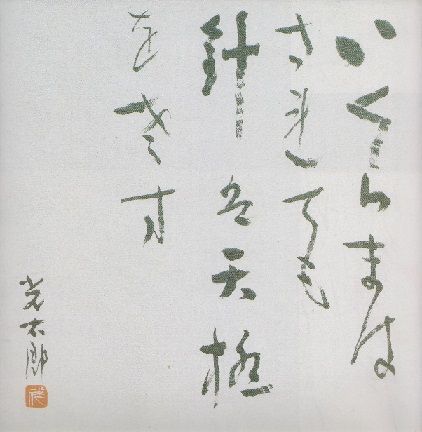 いくらまは
されても
針は天極
をさす
光太郎